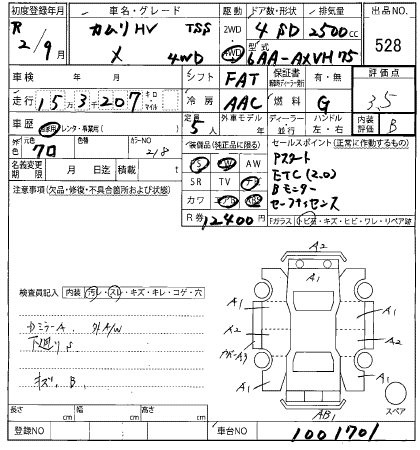 初度登録年月 車名・グレード 駆動 ドア数・形状 排気量 出品NO.
R 2/9月 カムリHV TSS 2WD 4 SD 2500cc 528
X 4WD 4WD 型式 6AA-AXVH75
車検 年 月 シフト FAT 保証書 有・無 評価点
走行 15万3千207 キロ・マイル 冷房 AAC 燃料 G 3.5
車歴 自家用・レンタ・事業用( ) 定員 5人 外車モデル 年 ディーラー 並行 ハンドル 左・右 内装評価 B
元色 70 色替 カラーNO 218 装備品(純正品に限る) セールスポイント(正常に動作するもの)
名義変更期限 月 日迄 積載 t PS PW AW Pスタート
SR TV ナビ ETC(2.0)
カワ エアB Bモニター
セーフティセンス
注意事項(欠品・修復・不具合箇所および状態) R券 12400円 Fガラス トビ石・キズ・ヒビ・ワレ・リペア跡
A2
A1
検査員記入 内装 汚レ・スレ・キズ・キレ・コゲ・穴
A1 A1
DミラーA 外A/W A2 A1
下廻りS A2
A3
キズ、B、 A1 A1 A1
AB1
スペア
長さ cm 幅 cm 高さ cm
登録NO 車台NO 1001701